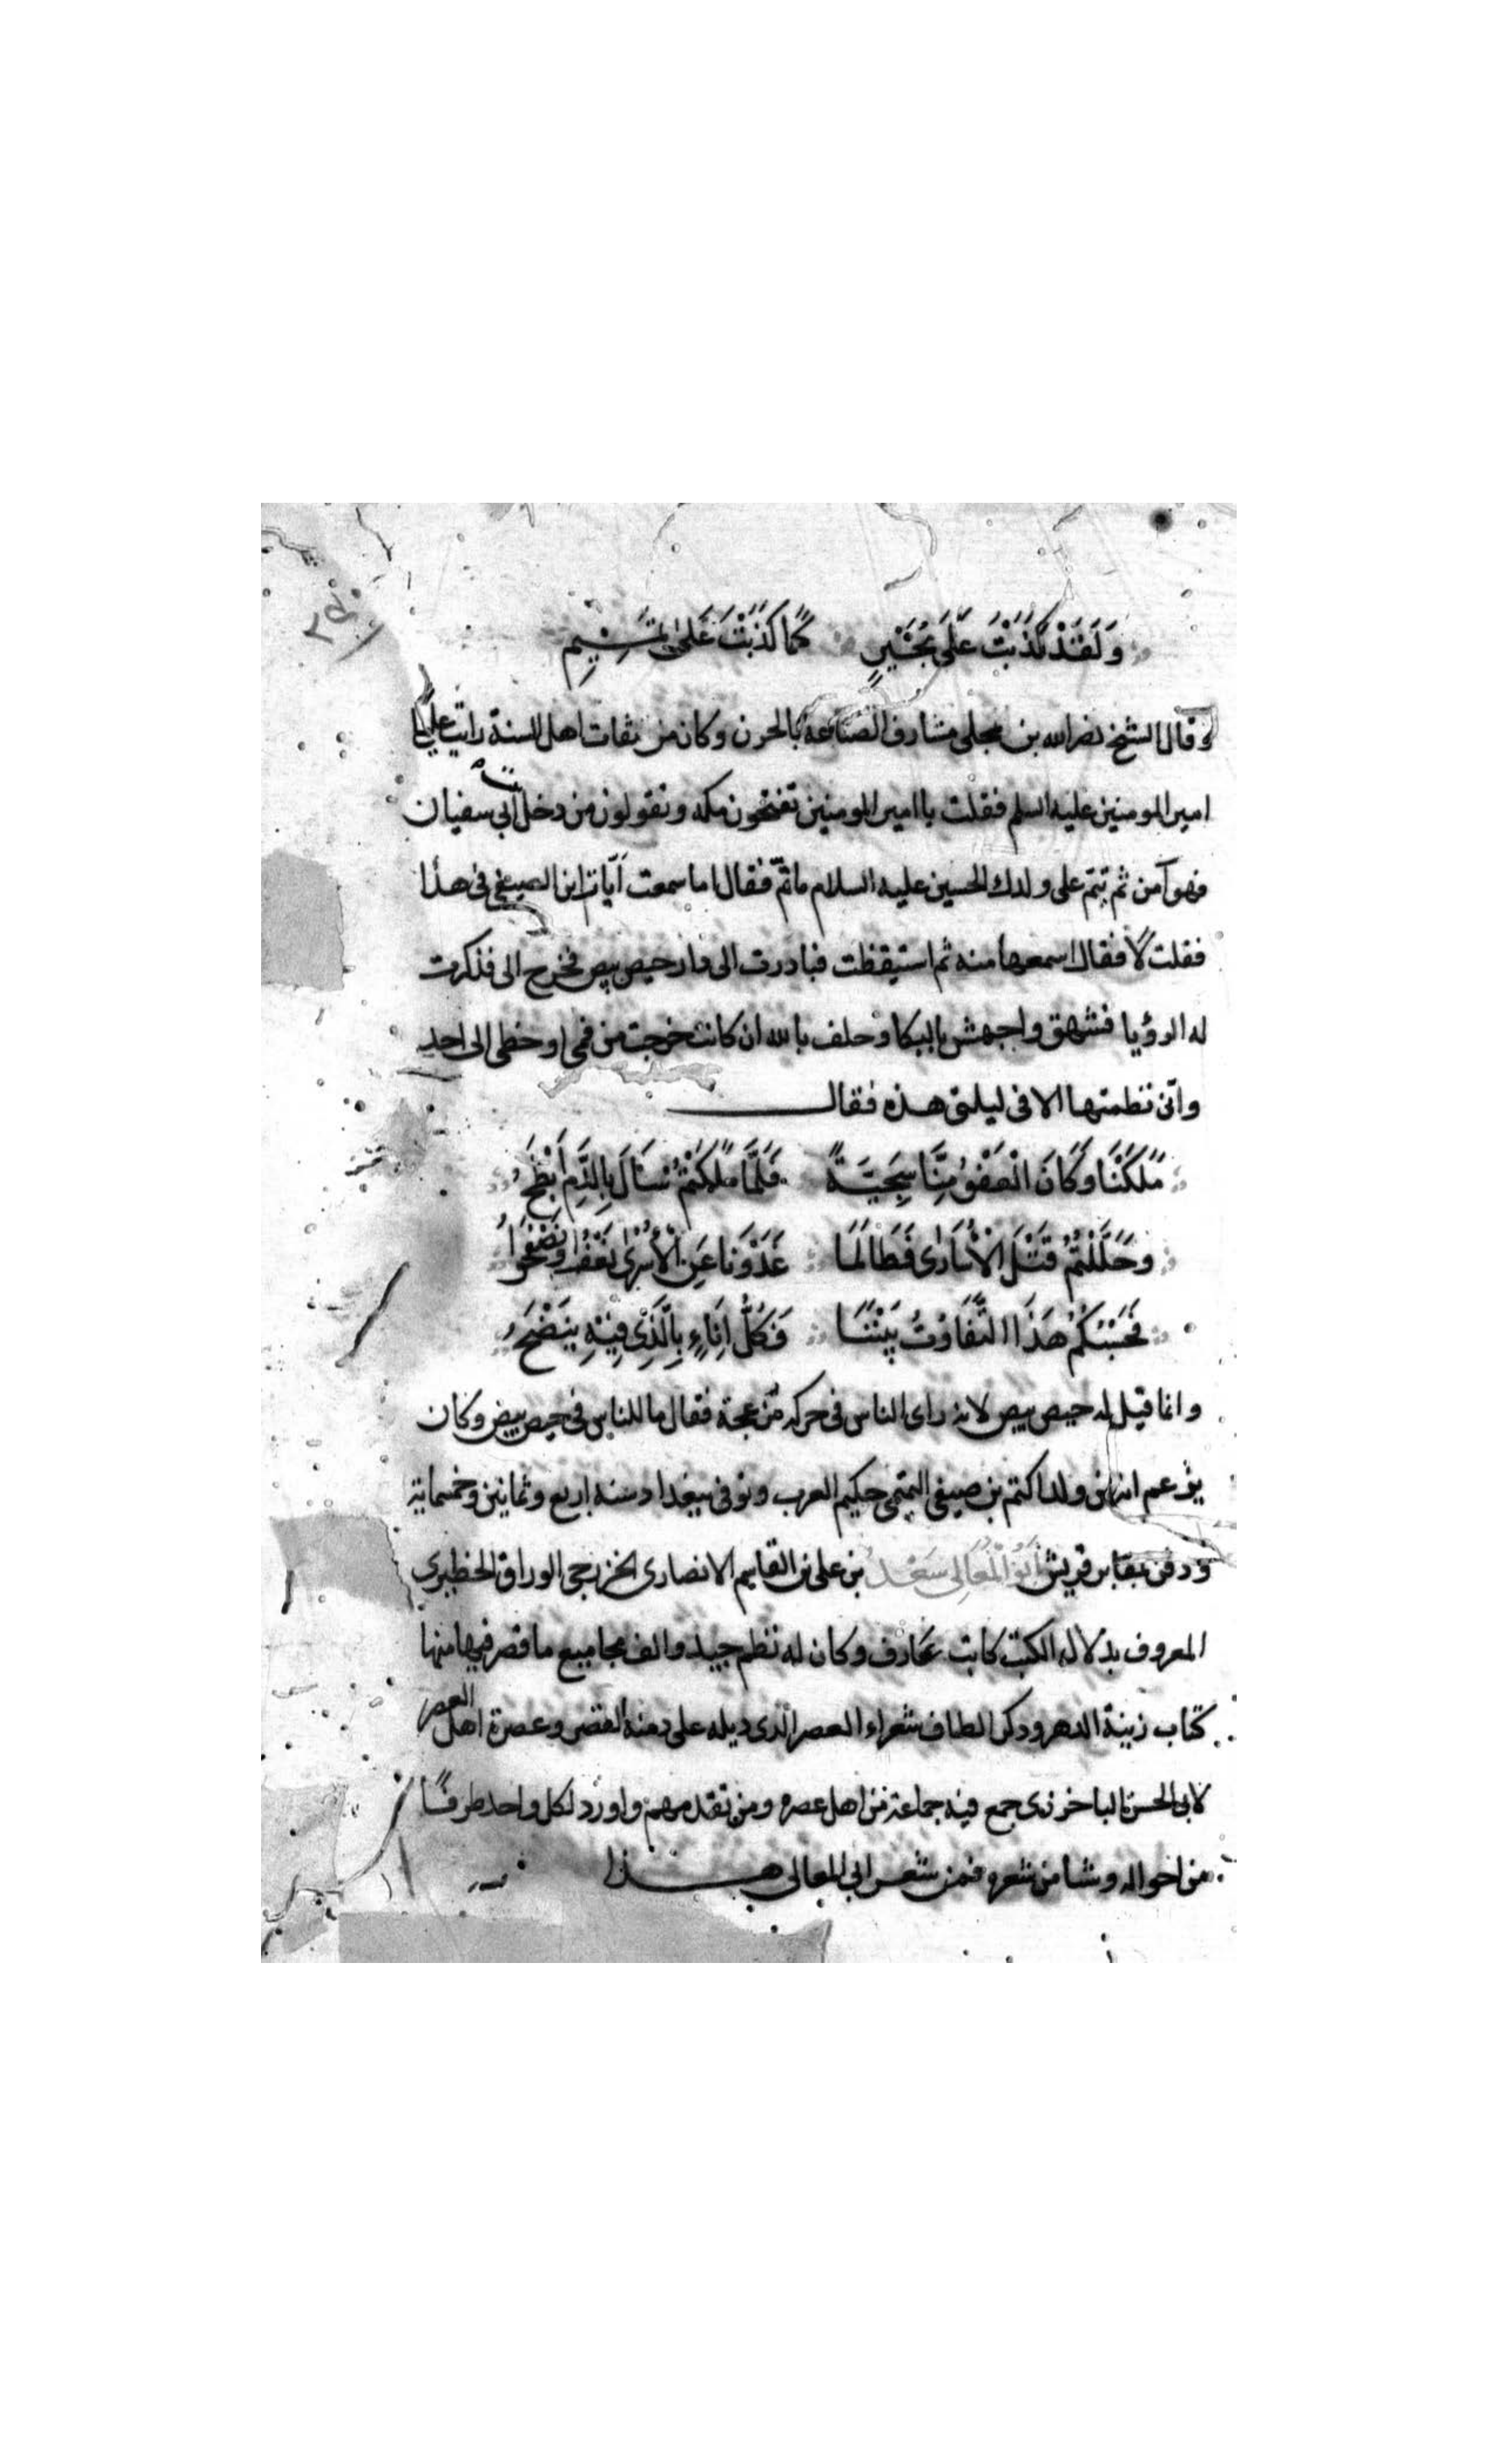 وَلَقَدْ كَذَبْتَ عَلَى بُحَيْرٍ كَمَا كَذَبْتَ عَلَى تَمِيمِ
وقال الشيخ نصر الله بن مجلى مشارف الصناعة بالحرن وكان من ثقات اهل السنة رايت عليا
امير المومنين عليه السلم فقلت يا امير المومنين تفتحون مكه وتقولون من دخل بيت ابى سفيان
فهو آمن ثم يتم على ولدك الحسين عليه السلام ما تمّ فقال اما سمعت ابيات ابن الصيفى فى هذا
فقلت لا فقال اسمعها منه ثم استيقظت فبادرت الى دار حيص بيص فخرج الى فذكرت
له الرؤيا فشهق واجهش بالبكا وحلف بالله ان كانت خرجت من فمى او خطى الى احد
وانى نظمتها الا فى ليلتى هذه فقال
مَلَكْنَا وَكَانَ الْعَفْوُ مِنَّا سَجِيَّةً فَلَمَّا مَلَكْتُمْ سَالَ بِالدَّمِ اَبْطَحُ
وحَلَّلْتُمُ قَتْلَ الْاُسَارَى فَطَالَمَا غَدَوْنَا عَنِ الْاَسْرَى نَعْفُوا وَنَصْفَحُ
فَحَسْبُكُمُ هَذَا التَّفَاوُتُ بَيْنَنَا فَكُلُّ اِنَاءٍ بِالَّذِى فِيْهِ يَنْضَحُ
وانما قيل له حيص بيص لانه راى الناس فى حركه مزعجة فقال ما للناس فى حيص بيص وكان
يزعم انه من ولد اكثم بن صيفى التميمى حكيم العرب وتوفى ببغداد سنه اربع وثمانين وخمسماية
ودفن بمقابر قريش اَبُو الْمَعَالِى سَعْدُ بن على بن القاسم الانصارى الخزرجى الوراق الحظيرى
المعروف بدلال الكتب كاتب عارف وكان له نظم جيد والف مجاميع ما قصر فيها منها
كتاب زينة الدهر وذكر الطاف شعراء العصر الذى ذيله على دمية القصر وعصرة اهل العصر
لابى الحسن الباخرزى جمع فيه جماعة من اهل عصره ومن تقدمهم واورد لكل واحد طرفًا
من احواله وشيا من شعره فمن شعر ابى المعالى هذا